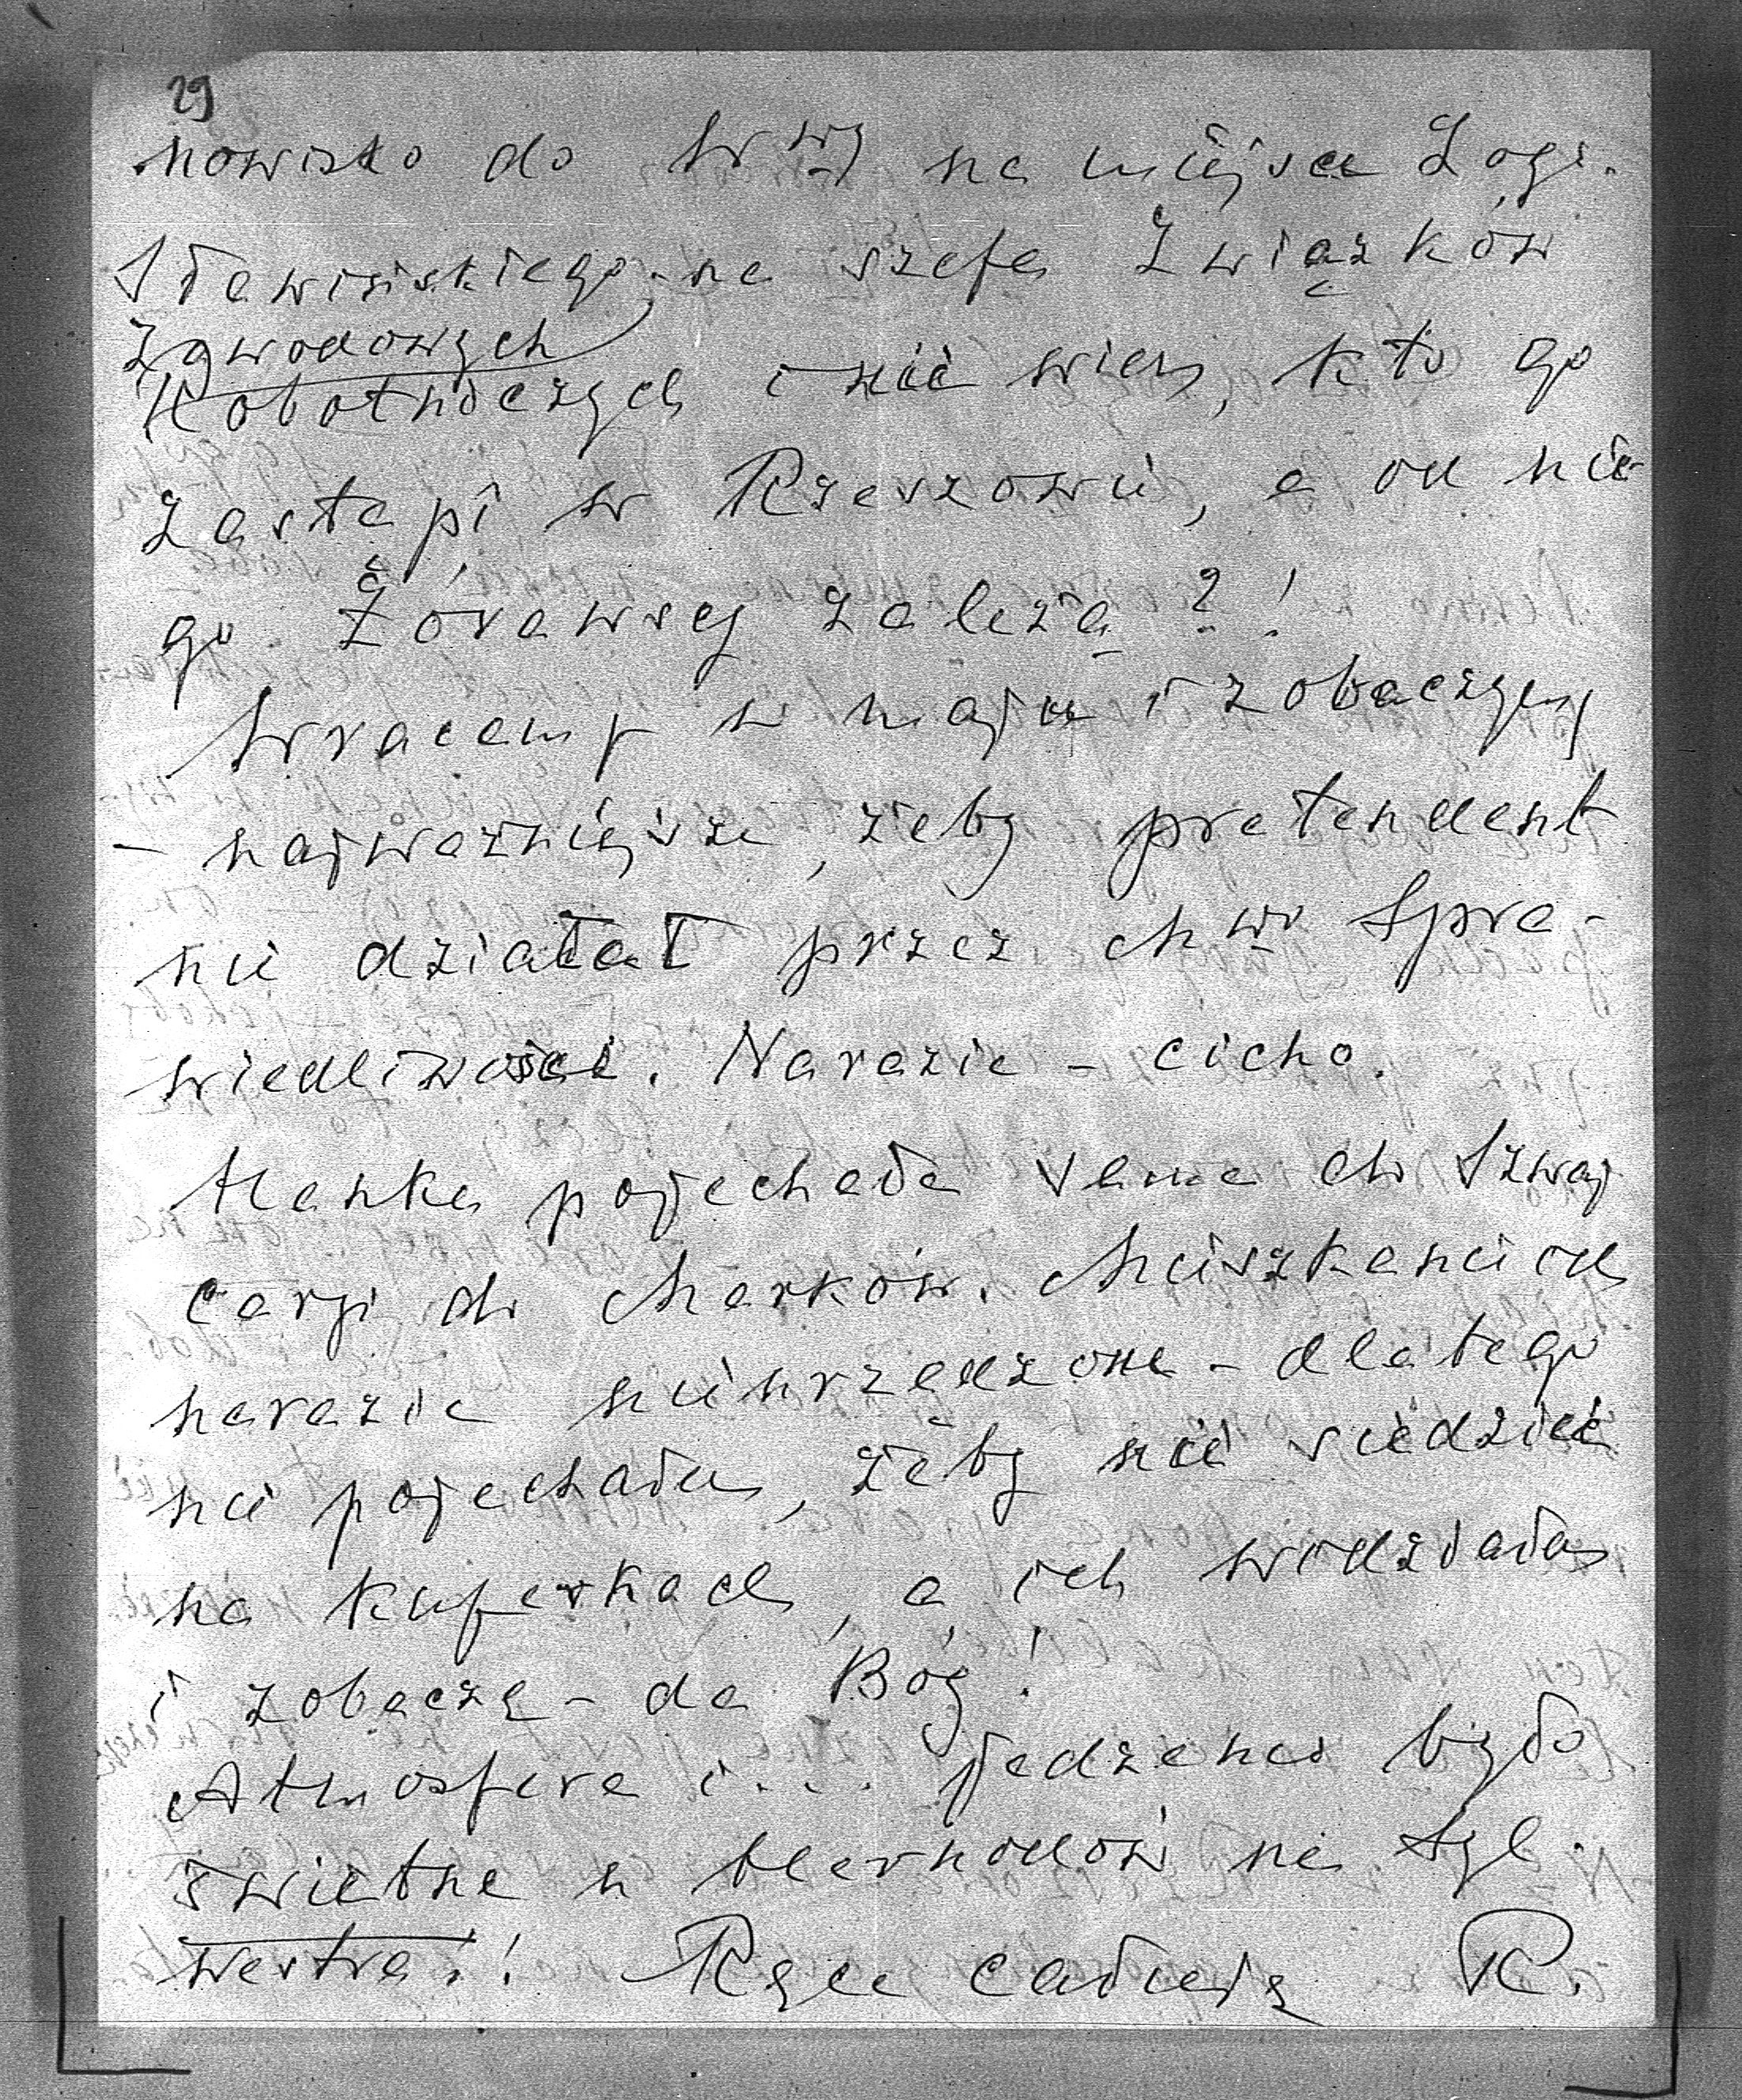 29
nowisko do Wwy na miejsce Loga-
Sławińskiego na szefa Związków
Zawodowych
Robotniczych i nie wiem, kto go
zastąpi w Rzeszowie, a on nie
go Żórawscy zależą?!
Wracamy w maju i zobaczymy
- najważniejsze, żeby pretendent
nie działał przez Spra-
wiedliwości. Narazie - cicho.
Hanka pojechała sama do Szwaj
carji do Marków. Mieszkanie ich
narazie nieurządzone - dlatego
nie pojechała, żeby nie siedzieć
na kuferkach, a ich widziała
i zobaczę - da Bóg!
Atmosfera i... jedzenie było
świetne u na Syl-
westra! Ręce całuję R.